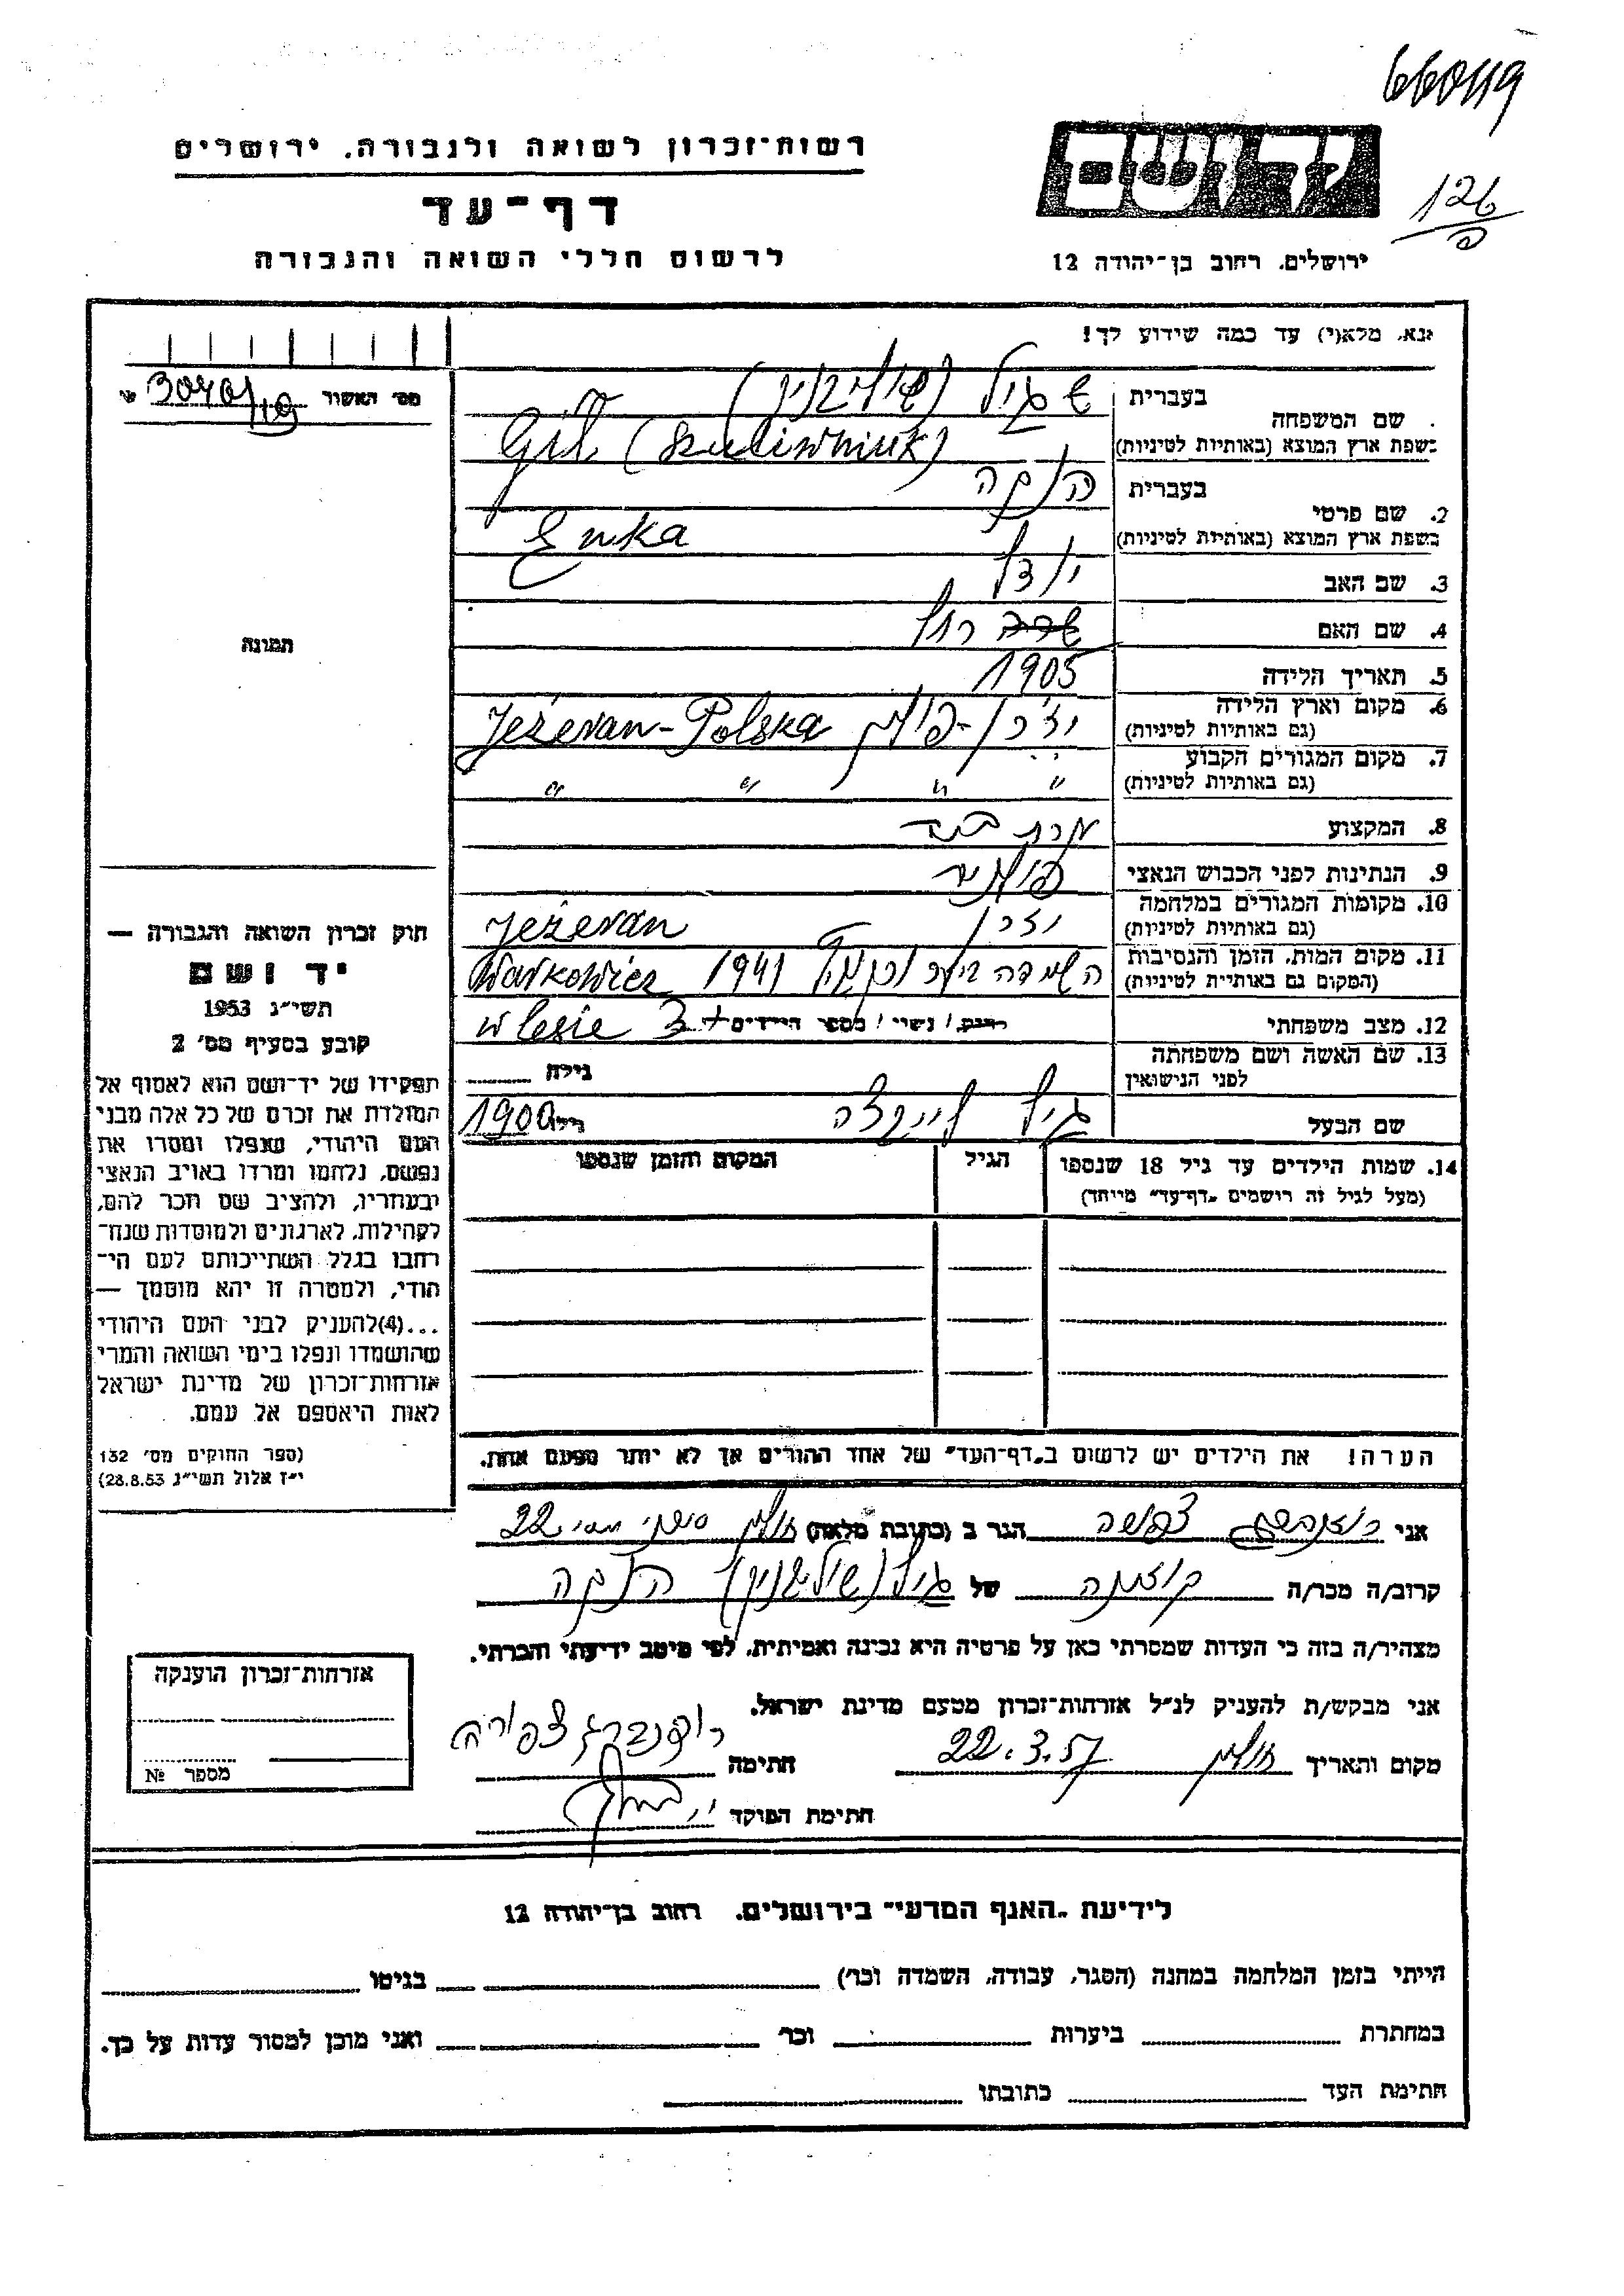 660119
רשות־זכרון לשואה ולגבורה. ירושלים
יד ושם
126
דף־עד
לרשום חללי השואה והגבורה
ירושלים. רחוב בן־יהודה 12
נא, מלא(י) עד כמה שידוע לך!
מס' האשור
שם המשפחה
בעברית
גיל (שוליבניק)
בשפת ארץ המוצא (באותיות לטיניות)
Gil (Szuliwniuk)
2. שם פרטי
בעברית
הנקה
בשפת ארץ המוצא (באותיות לטיניות)
Enka
3. שם האב
יודל
4. שם האם
רחל
תמונה
5. תאריך הלידה
1905
6. מקום וארץ הלידה
(גם באותיות לטיניות)
יזרן - פולין Ježeran - Polska
7. מקום המגורים הקבוע
(גם באותיות לטיניות)
" " " "
8. המקצוע
עקרת בית
9. הנתינות לפני הכבוש הנאצי
פולנית
10. מקומות המגורים במלחמה
(גם באותיות לטיניות)
יזרן Ježeran
11. מקום המות, הזמן והנסיבות
(המקום גם באותיות לטיניות)
השמדה ביער 1941 Warkowicz
12. מצב משפחתי
רווק / נשוי / מספר הילדים + 3 w lesie
13. שם האשה ושם משפחתה
לפני הנישואין
גילה
שם הבעל
גיל
גילו 1900
14. שמות הילדים עד גיל 18 שנספו
(מעל לגיל זה רושמים "דף־עד" מיוחד)
הגיל
המקום והזמן שנספו
חוק זכרון השואה והגבורה —
יד ושם
תשי"ג 1953
קובע בסעיף מס' 2
תפקידו של יד־ושם הוא לאסוף אל
המולדת את זכרם של כל אלה מבני
העם היהודי, שנפלו ומסרו את
נפשם, נלחמו ומרדו באויב הנאצי
ובעוזריו, ולהציב שם וזכר להם,
לקהילות, לארגונים ולמוסדות שנח־
רבו בגלל השתייכותם לעם הי־
הודי, ולמטרה זו יהא מוסמך —
...(4)להעניק לבני העם היהודי
שהושמדו ונפלו בימי השואה והמרי
אזרחות־זכרון של מדינת ישראל
לאות היאספם אל עמם.
(ספר החוקים מס' 132
י"ז אלול תשי"ג 28.8.53)
הערה! את הילדים יש לרשום ב"דף־העד" של אחד ההורים אך לא יותר מפעם אחת.
אני רוזנברג צפורה הגר ב (כתובת מלאה) חולון 22
קרוב/ה מכר/ה קוזינה של גיל (שוליבניק) הנקה
מצהיר/ה בזה כי העדות שמסרתי כאן על פרטיה היא נכונה ואמיתית, לפי מיטב ידיעתי והכרתי.
אני מבקש/ת להעניק לנ"ל אזרחות־זכרון מטעם מדינת ישראל.
מקום ותאריך חולון 22.3.57 חתימה רוזנברג צפורה
חתימת הפוקד
אזרחות־זכרון הוענקה
מספר №
לידיעת "האגף המדעי" בירושלים. רחוב בן־יהודה 12
הייתי בזמן המלחמה במחנה (הסגר, עבודה, השמדה וכר') בגיטו
במחתרת ביערות וכר' ואני מוכן למסור עדות על כך.
חתימת העד כתובתו